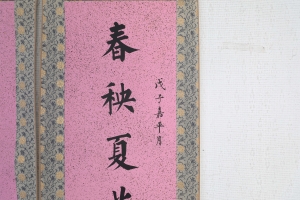 春秧夏
戊子嘉平月